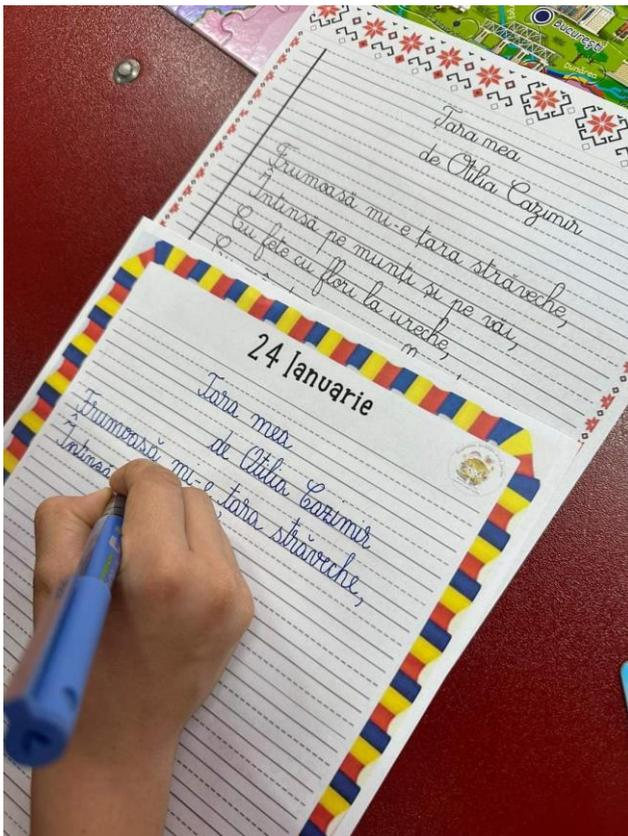 București
Dunărea
Țara mea
de Otilia Cazimir
Frumoasă mi-e țara străveche,
Întinsă pe munți și pe văi,
Cu fete cu flori la ureche,
24 Ianuarie
Țara mea
de Otilia Cazimir
Frumoasă mi-e țara străveche,
Întinsă